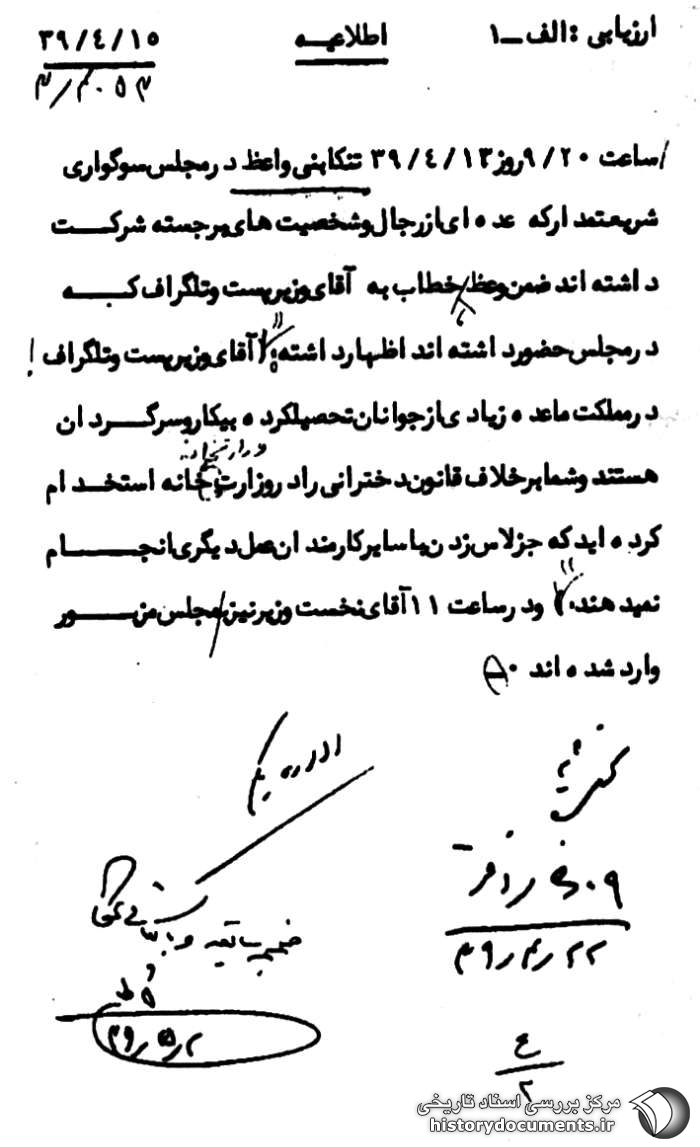 ارزیابی : الف ـ ۱
اطلاعیه
۳۹/۴/۱۵
ساعت ۹/۲۰ روز ۳۹/۴/۱۳ تنکابنی واعظ در مجلس سوگواری
شریعتمدار که عده ای از رجال و شخصیت های برجسته شرکت
داشته اند ضمن وعظ خطاب به آقای وزیر پست و تلگراف که
در مجلس حضور داشته اند اظهار داشته: آقای وزیر پست و تلگراف !
در مملکت ما عده زیادی از جوانان تحصیلکرده بیکار و سرگردان
هستند و شما بر خلاف قانون دخترانی را در وزارت خانه استخدام
کرده اید که جز لاس زدن با سایر کارمندان عمل دیگری انجام
نمیدهند. و در ساعت ۱۱ آقای نخست وزیر نیز مجلس مزبور
وارد شده اند ۰
۳۹/۴/۲۲
۳۹/۵/۲
۴
۲
مرکز بررسی اسناد تاریخی
historydocuments.ir